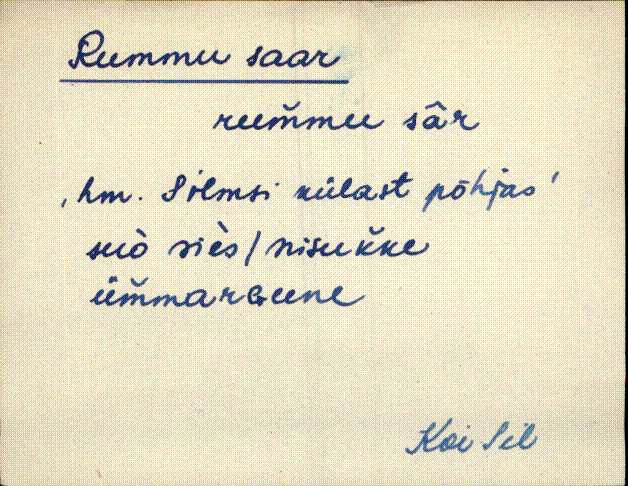 Rummu saar
rum̆mu sâr
, hm. Silmsi külast põhjas'
suò siès / nisuk̆ke
üm̆margune
Koi Sil